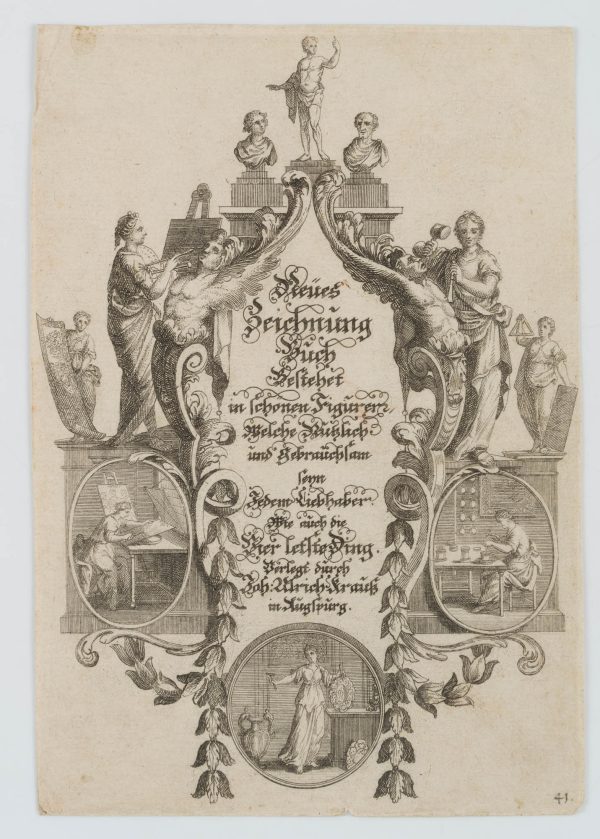 Neües
Zeichnung
Buch
Bestehet
in schönen Figuren
Welche Nutzlich
und Gebrauchsam
seyn
Jedem Liebhaber.
Wie auch die
Vier letste Ding.
Verlegt durch
Joh. Ulrich Krauß
in Augspurg.
41.